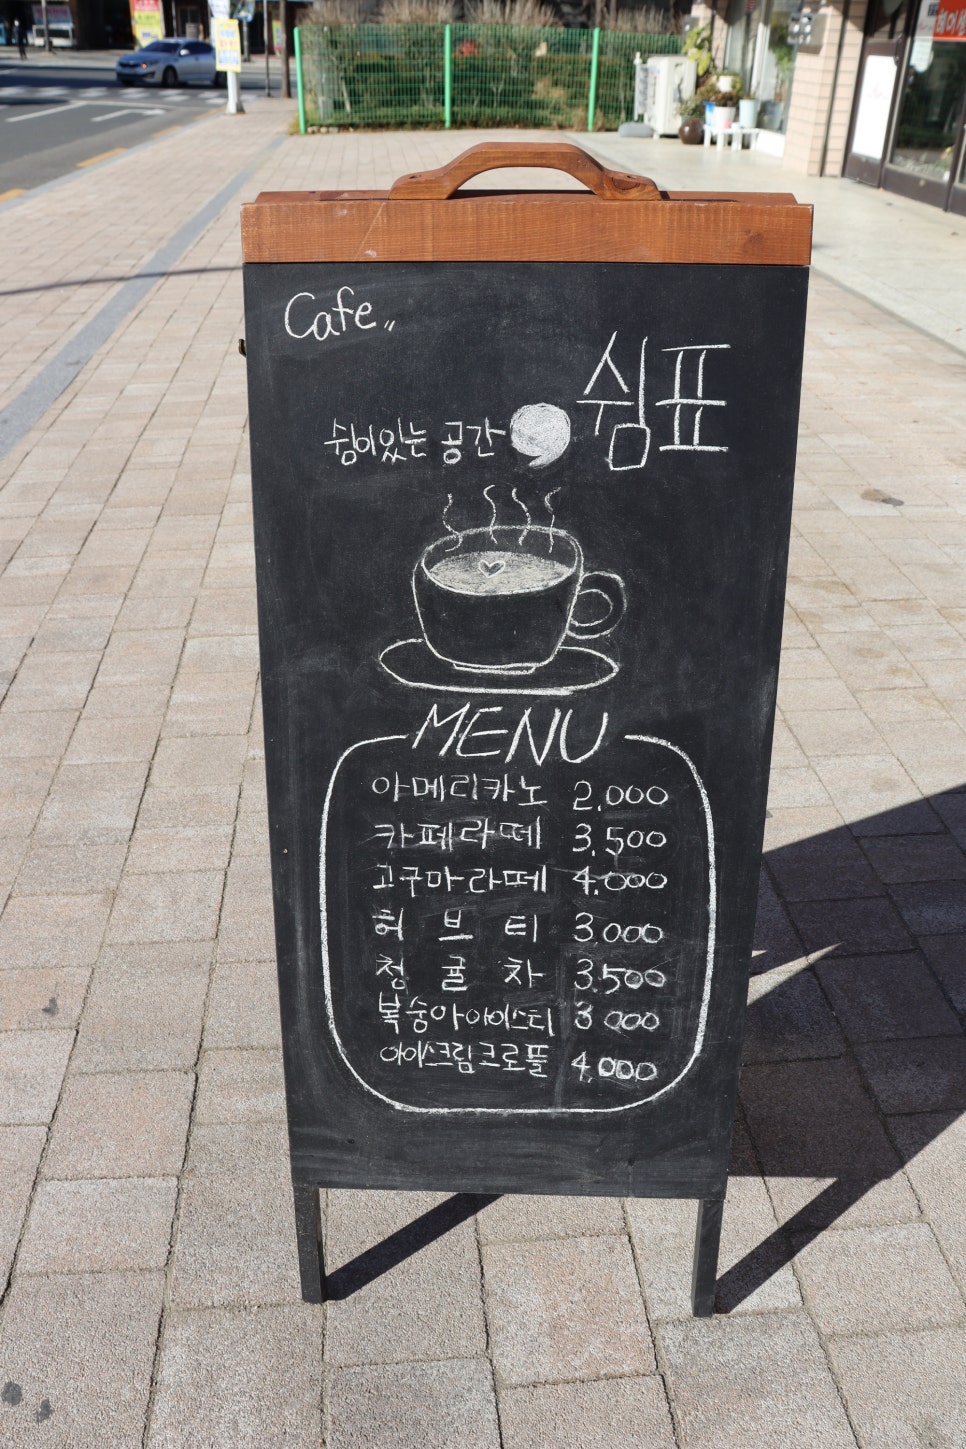 Cafe,,
쉼표
쉼이있는 공간
MENU
아메리카노 2.000
카페라떼 3.500
고구마라떼 4.000
허브티 3.000
청귤차 3.500
복숭아아이스티 3.000
아이스크림크로플 4.000